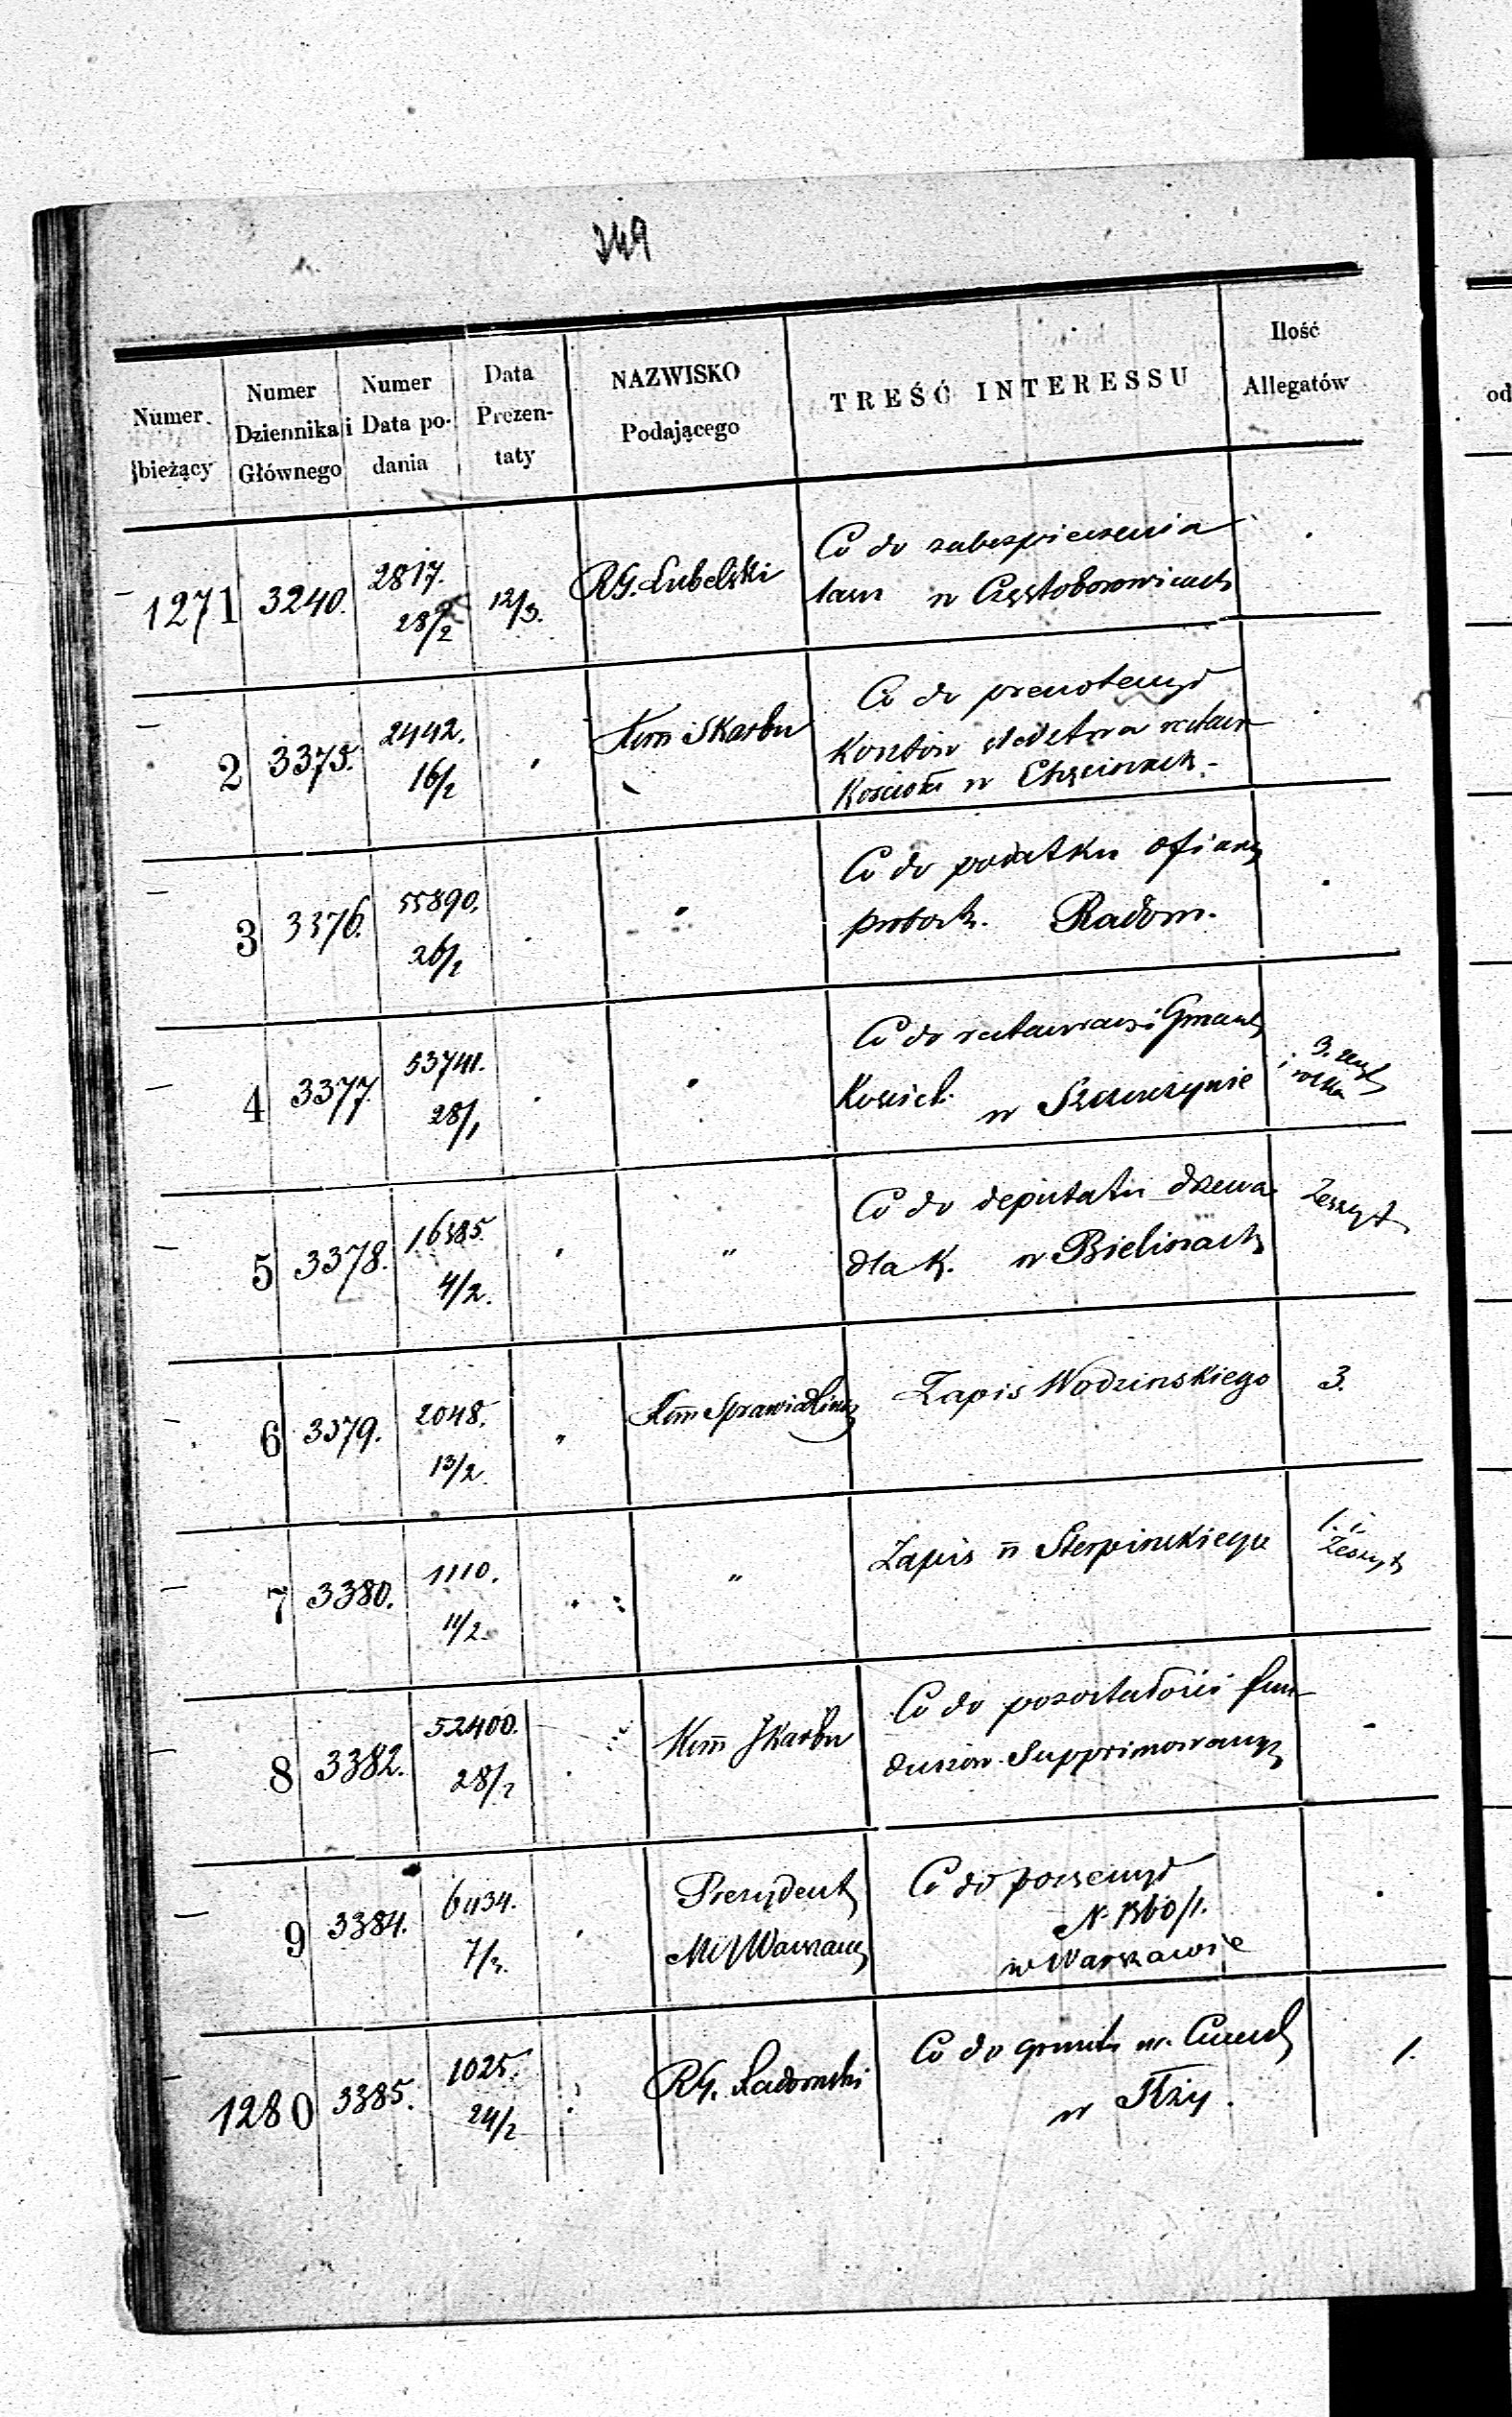 249
Numer bieżący
Numer Dziennika Głównego
Numer i Data podania
Data Prezentaty
NAZWISKO Podającego
TREŚĆ INTERESSU
Ilość Allegatów
od
1271 3240. 2817. 28/2 12/3. RG. Lubelski Co do zabezpieczenia
w Częstoborowicach
2 3375. 2442. 16/2 " Kom Skarbu Co do
Kosztów
w Chęcinach.
3 3376. 55890. 26/2 " " Co do podatku ofiary
probosz. Radom.
4 3377. 53741. 28/1 " " Co do
Kościel. w Szczuczynie 3.
5 3378. 16385. 4/2. " " Co do deputatu drzewa
dla K. w Bielinach Zeszyt
6 3379. 2048. 13/2 " Kom Sprawiedliwoś Zapis Wodzinskiego 3.
7 3380. 1110. 11/2. " " Zapis Sierpinskiego 1. i Zeszyt
8 3382. 52400. 28/2 " Kom Skarbu Co do pozostałości fun
duszow Supprimowanych
9 3384. 6434. 7/3. " Prezydent
M Warszawy Co do posesyi
N. 1360/1.
w Warszawie
1280 3385. 1025. 24/2 " RG. Radomski Co do gruntu
w Iłży. 1.